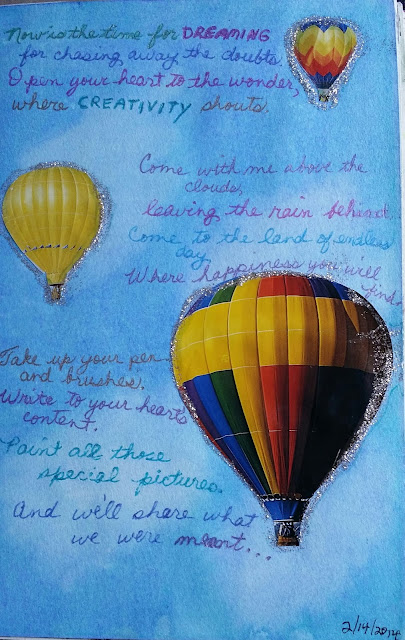 Now is the time for DREAMING
for chasing away the doubts.
Open your heart to the wonder,
where CREATIVITY shouts.
Come with me above the
clouds,
leaving the rain behind
Come to the land of endless
day
Where happiness you'll
find.
Take up your pen
and brushes.
Write to your hearts
content.
Paint all those
special pictures.
And we'll share what
we were meant...
2/14/2014